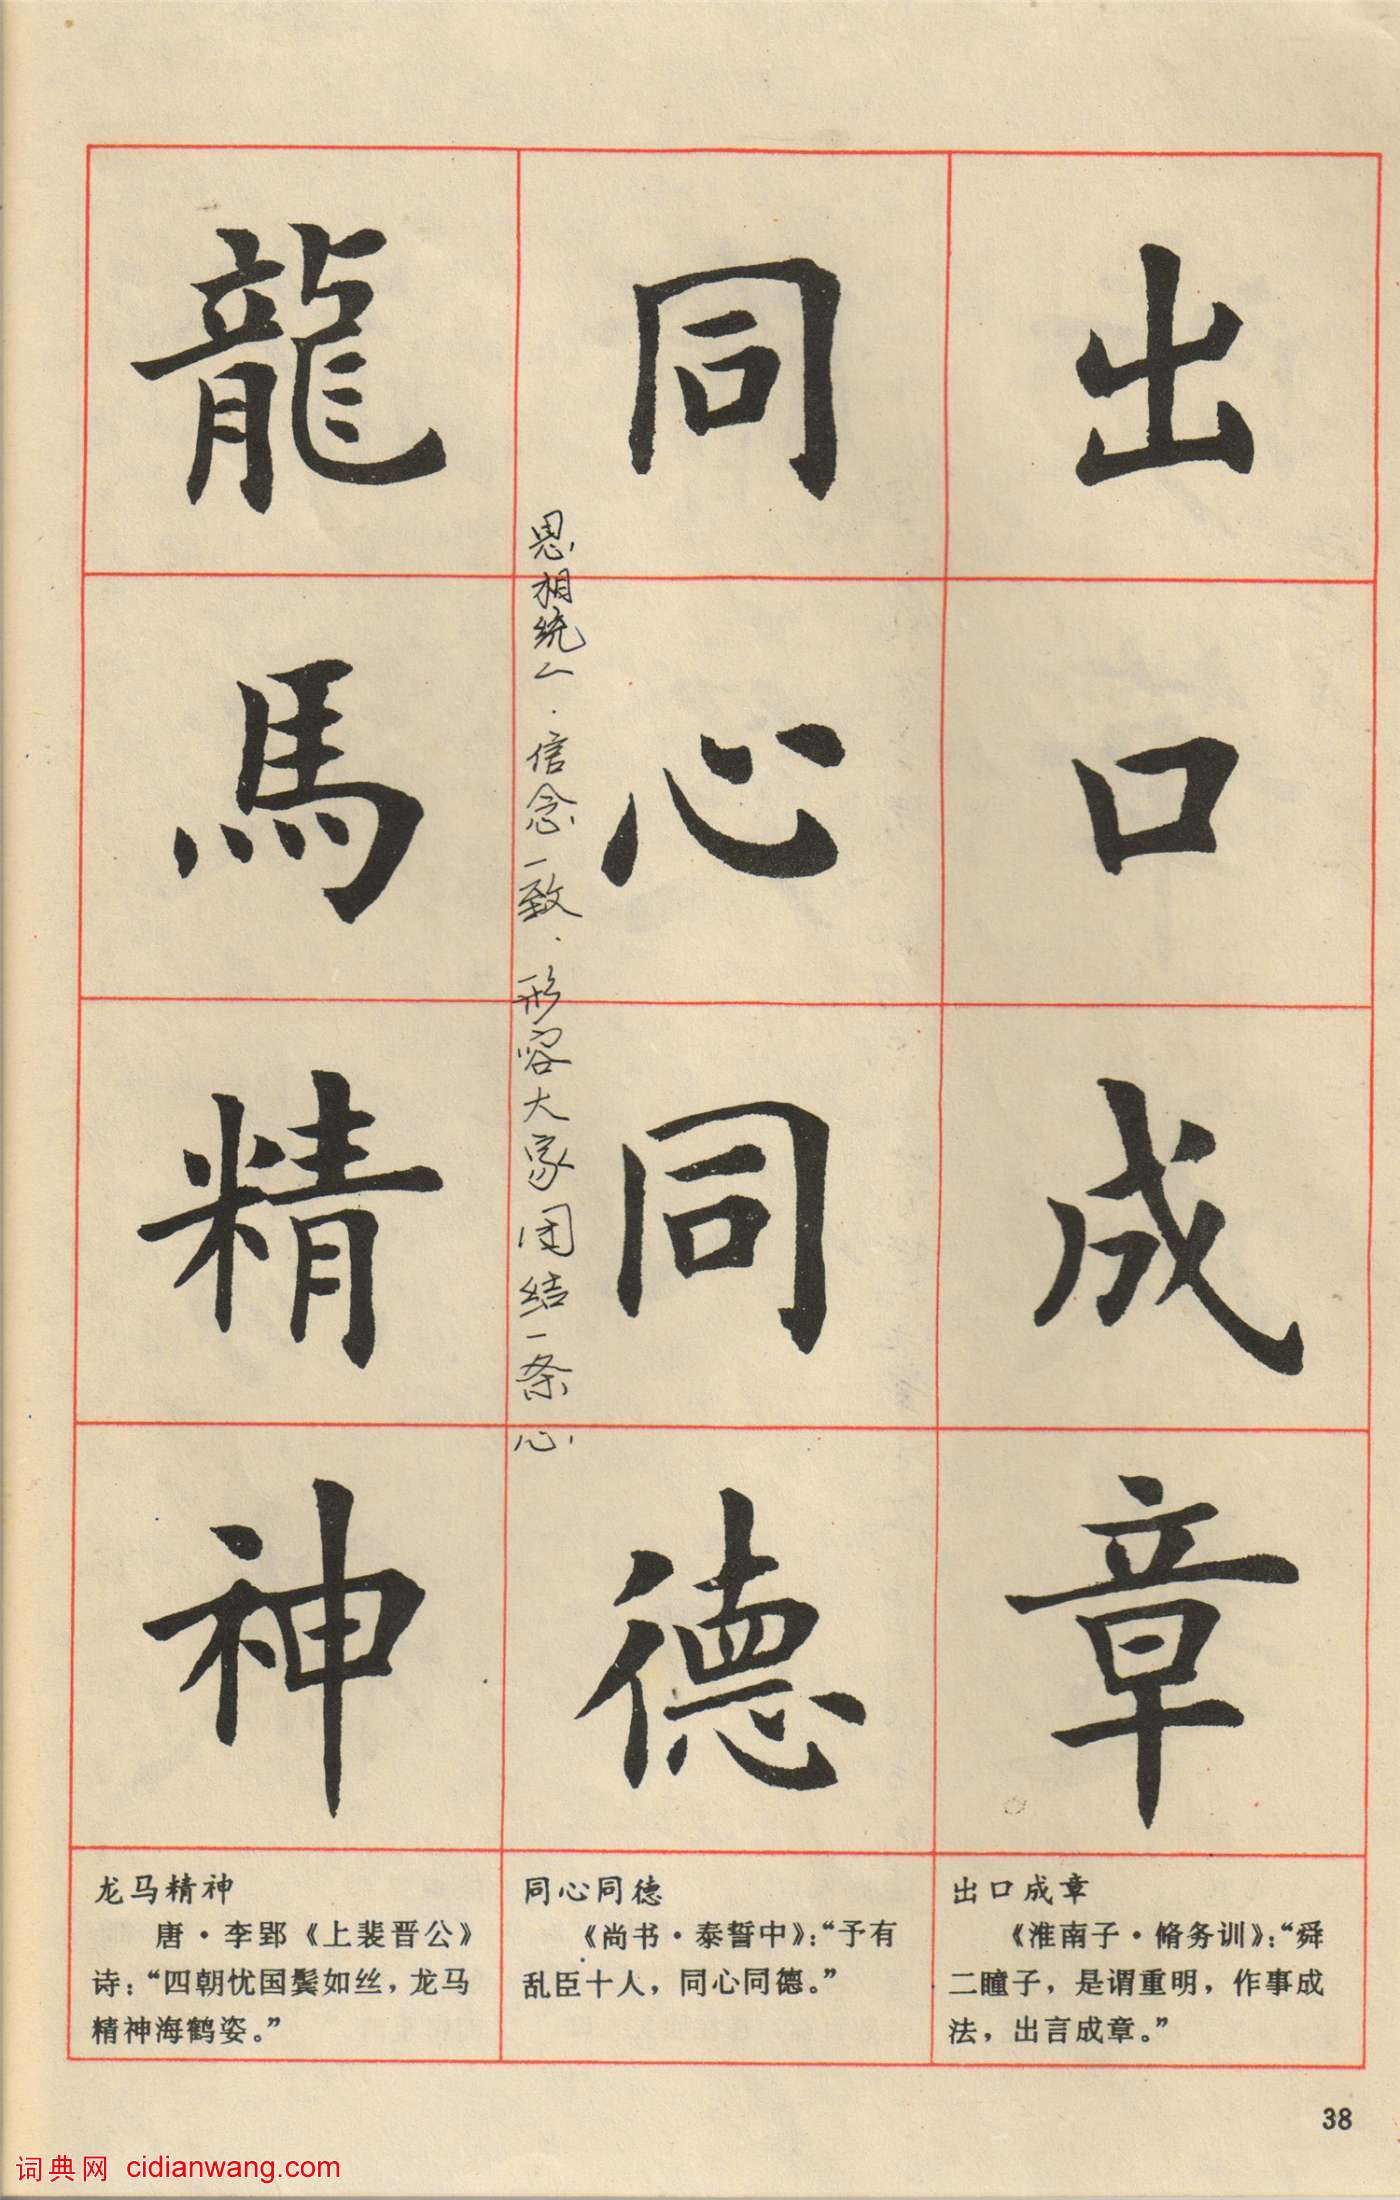 龍馬精神
同心同德
出口成章
恩相统一．信念一致．形容大家团结一条心
龙马精神
唐·李郢《上裴晋公》
诗：“四朝忧国鬓如丝，龙马
精神海鹤姿。”
同心同德
《尚书·泰誓中》：“予有
乱臣十人，同心同德。”
出口成章
《淮南子·脩务训》：“舜
二瞳子，是谓重明，作事成
法，出言成章。”
38
词典网 cidianwang.com